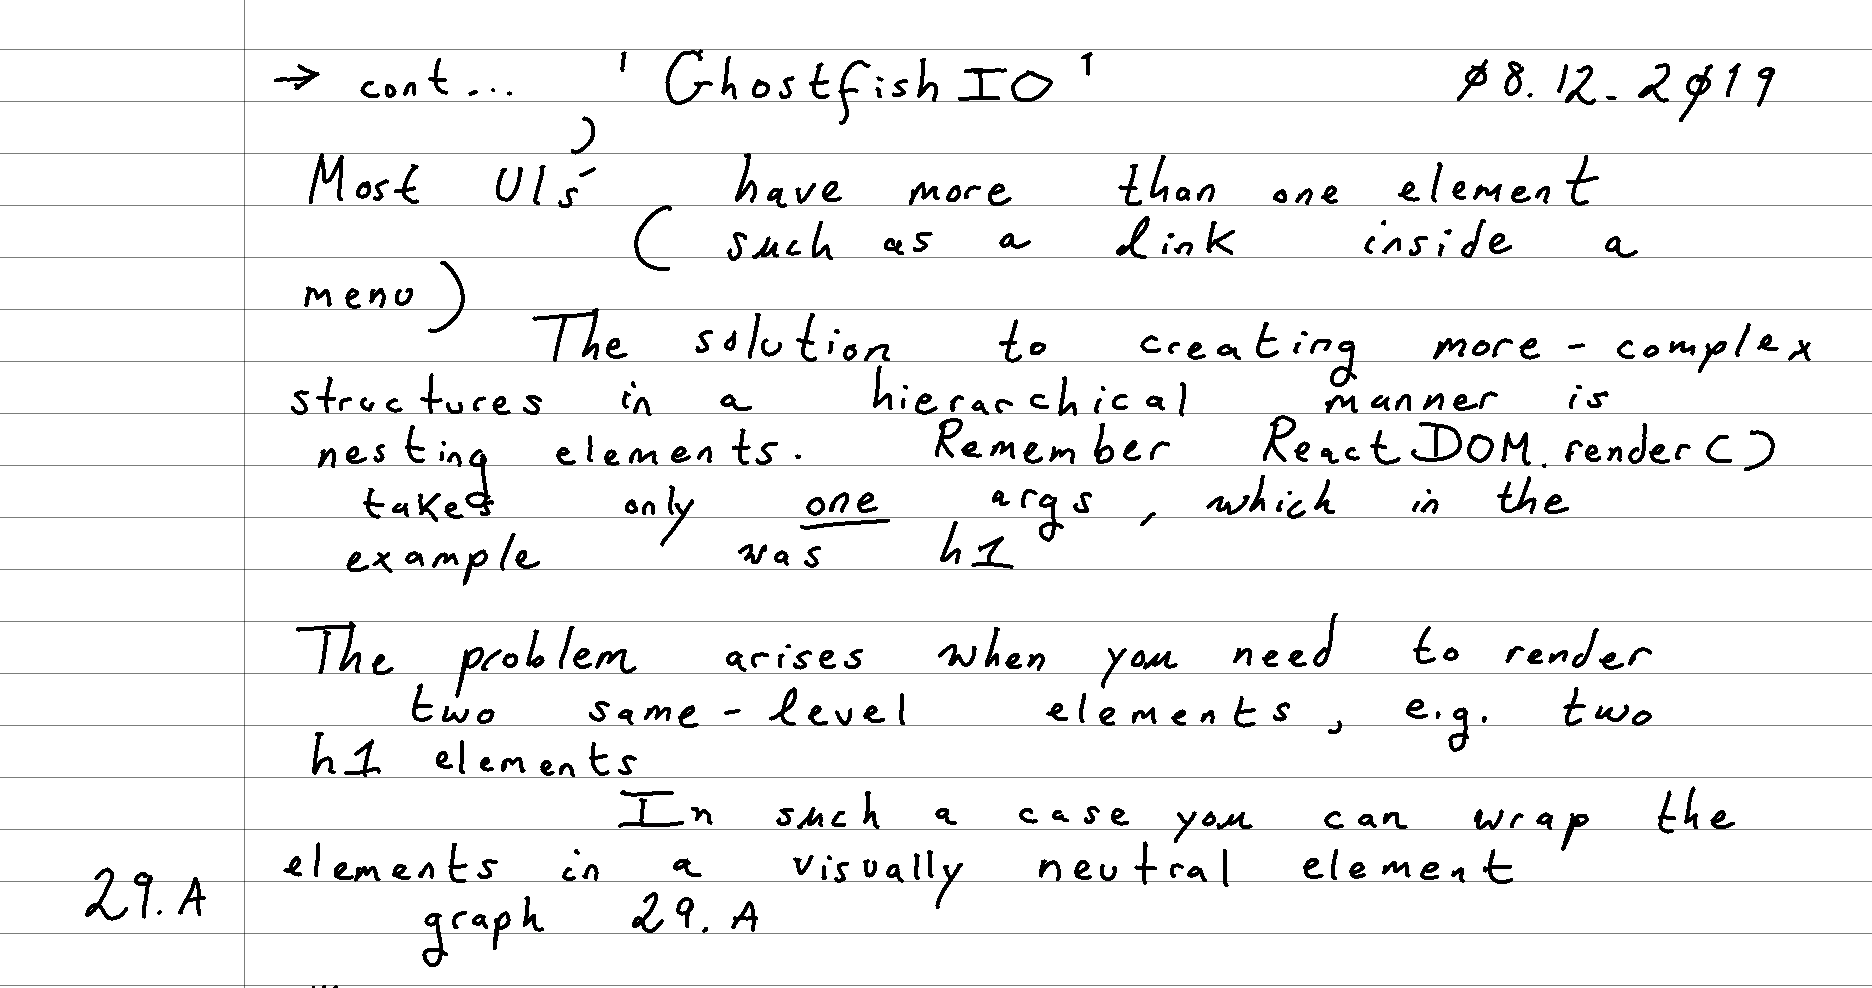 → cont... 'Ghostfish IO' 08.12.2019
Most UIs have more than one element
(such as a link inside a
menu)
The solution to creating more-complex
structures in a hierarchical manner is
nesting elements. Remember ReactDOM.render()
takes only one args, which in the
example was h1
The problem arises when you need to render
two same-level elements, e.g. two
h1 elements
In such a case you can wrap the
elements in a visually neutral element
29.A
graph 29.A